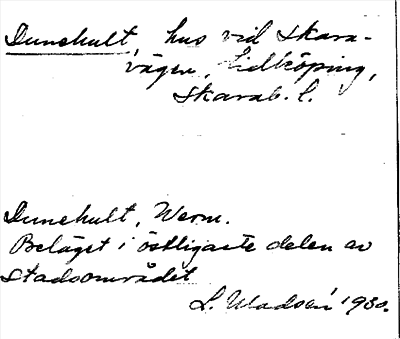 Dunehult, hus vid Skara-
vägen, Lidköping,
Skarab. l.
Dunehult, Werm.
Beläget i östligaste delen av
Stadsområdet
L. 1930.